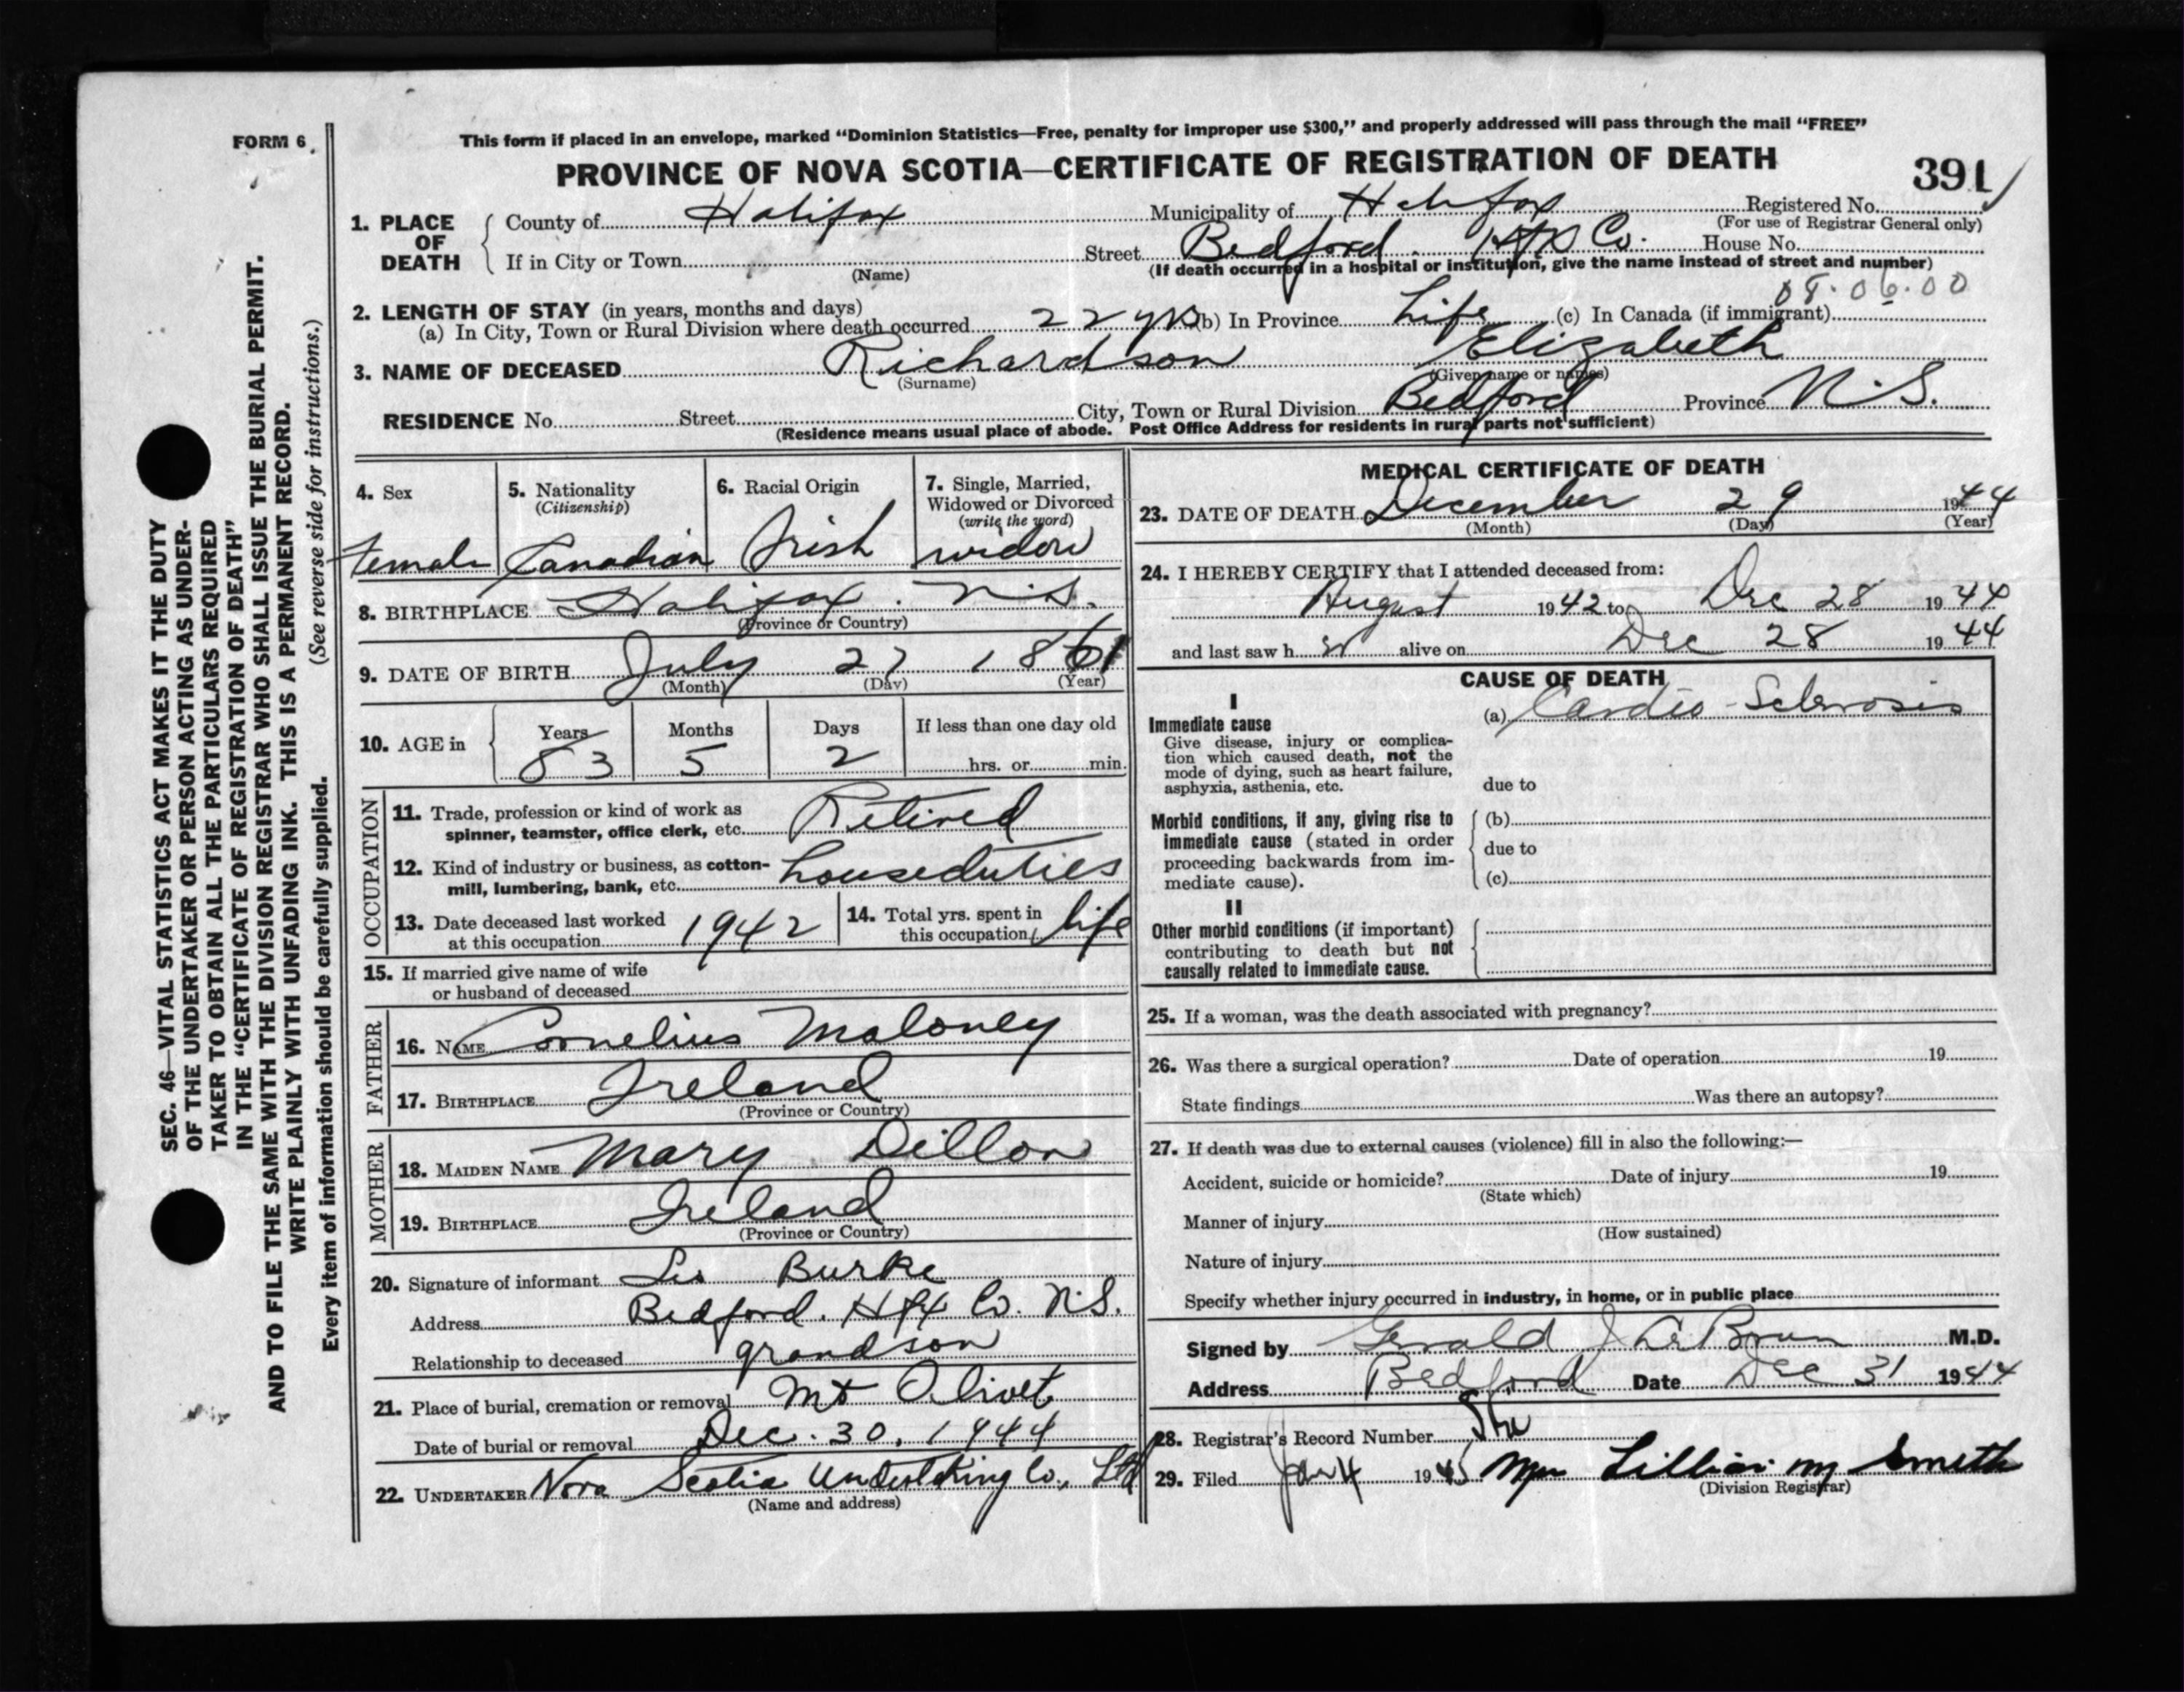 FORM 6.
This form if placed in an envelope, marked "Dominion Statistics—Free, penalty for improper use $300," and properly addressed will pass through the mail "FREE"
PROVINCE OF NOVA SCOTIA—CERTIFICATE OF REGISTRATION OF DEATH
391
1. PLACE OF DEATH
County of Halifax Municipality of Halifax Registered No.
(For use of Registrar General only)
If in City or Town Street Bedford. Hfx Co. House No.
(Name) (If death occurred in a hospital or institution, give the name instead of street and number)
08.06.00
2. LENGTH OF STAY (in years, months and days)
(a) In City, Town or Rural Division where death occurred 22 yrs (b) In Province Life (c) In Canada (if immigrant)
3. NAME OF DECEASED Richardson Elizabeth
(Surname) (Given name or names)
RESIDENCE No. Street City, Town or Rural Division Bedford Province N.S.
(Residence means usual place of abode. Post Office Address for residents in rural parts not sufficient)
4. Sex
female
5. Nationality
(Citizenship)
Canadian
6. Racial Origin
Irish
7. Single, Married,
Widowed or Divorced
(write the word)
widow
8. BIRTHPLACE Halifax. N.S.
(Province or Country)
9. DATE OF BIRTH July 27 1861
(Month) (Day) (Year)
10. AGE in Years 83 Months 5 Days 2 If less than one day old
hrs. or min.
OCCUPATION
11. Trade, profession or kind of work as
spinner, teamster, office clerk, etc. Retired
12. Kind of industry or business, as cotton-
mill, lumbering, bank, etc. houseduties
13. Date deceased last worked
at this occupation 1942
14. Total yrs. spent in
this occupation life
15. If married give name of wife
or husband of deceased
FATHER
16. NAME Cornelius Maloney
17. BIRTHPLACE Ireland
(Province or Country)
MOTHER
18. MAIDEN NAME Mary Dillon
19. BIRTHPLACE Ireland
(Province or Country)
20. Signature of informant Leo Burke
Address Bedford. Hfx Co. N.S.
Relationship to deceased grandson
21. Place of burial, cremation or removal Mt Olivet
Date of burial or removal Dec. 30, 1944
22. UNDERTAKER Nova Scotia Undertaking Co., Ltd
(Name and address)
MEDICAL CERTIFICATE OF DEATH
23. DATE OF DEATH December 29 1944
(Month) (Day) (Year)
24. I HEREBY CERTIFY that I attended deceased from:
August 1942 to Dec 28 1944
and last saw h er alive on Dec 28 1944
CAUSE OF DEATH
I
Immediate cause
Give disease, injury or complica-
tion which caused death, not the
mode of dying, such as heart failure,
asphyxia, asthenia, etc.
(a) Cardio-Sclerosis
due to
Morbid conditions, if any, giving rise to
immediate cause (stated in order
proceeding backwards from im-
mediate cause).
(b)
due to
(c)
II
Other morbid conditions (if important)
contributing to death but not
causally related to immediate cause.
25. If a woman, was the death associated with pregnancy?
26. Was there a surgical operation? Date of operation 19
State findings Was there an autopsy?
27. If death was due to external causes (violence) fill in also the following:—
Accident, suicide or homicide? Date of injury 19
(State which)
Manner of injury
(How sustained)
Nature of injury
Specify whether injury occurred in industry, in home, or in public place
Signed by Gerald J. LeBrun M.D.
Address Bedford Date Dec 31 1944
28. Registrar's Record Number
29. Filed Jan 4 1945 Mrs Lillian M Smith
(Division Registrar)
SEC. 46—VITAL STATISTICS ACT MAKES IT THE DUTY
OF THE UNDERTAKER OR PERSON ACTING AS UNDER-
TAKER TO OBTAIN ALL THE PARTICULARS REQUIRED
IN THE "CERTIFICATE OF REGISTRATION OF DEATH"
AND TO FILE THE SAME WITH THE DIVISION REGISTRAR WHO SHALL ISSUE THE BURIAL PERMIT.
WRITE PLAINLY WITH UNFADING INK. THIS IS A PERMANENT RECORD.
Every item of information should be carefully supplied. (See reverse side for instructions.)